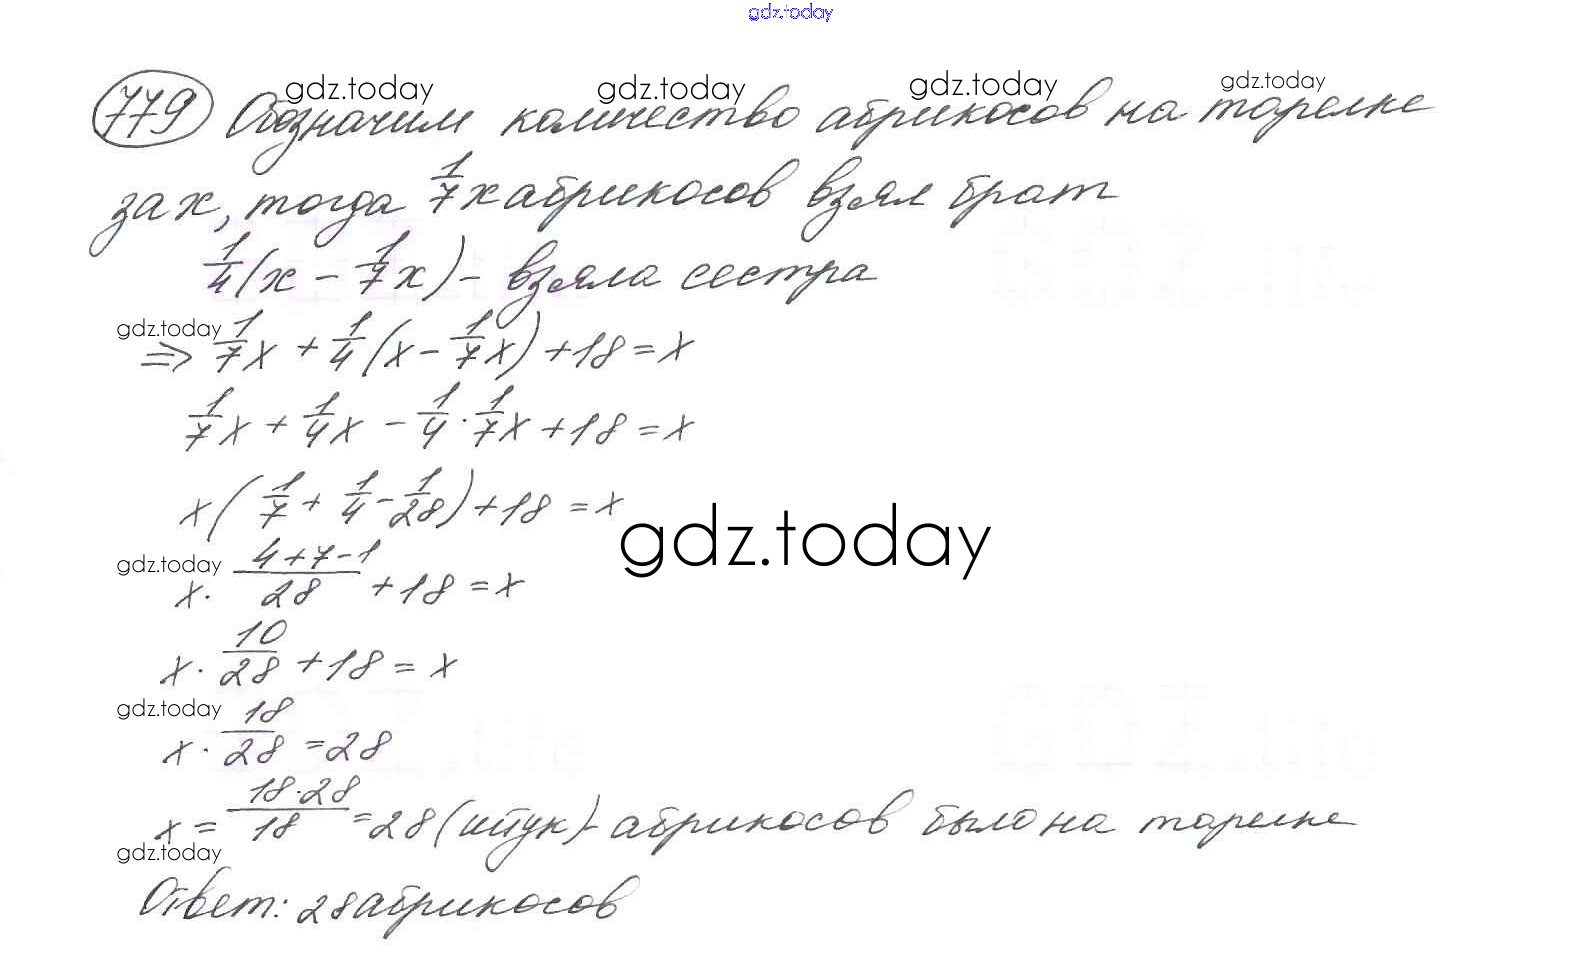 gdz.today
gdz.today gdz.today gdz.today gdz.today
779 Обозначим количество абрикосов на тарелке
за x, тогда 1/7 x абрикосов взял брат
1/4 (x - 1/7 x) - взяла сестра
gdz.today
=> 1/7 x + 1/4 (x - 1/7 x) + 18 = x
1/7 x + 1/4 x - 1/4 · 1/7 x + 18 = x
x (1/7 + 1/4 - 1/28) + 18 = x
gdz.today
gdz.today
x · (4+7-1)/28 + 18 = x
x · 10/28 + 18 = x
gdz.today
x · 18/28 = 28
x = (18·28)/18 = 28 (штук) - абрикосов было на тарелке
gdz.today
Ответ: 28 абрикосов